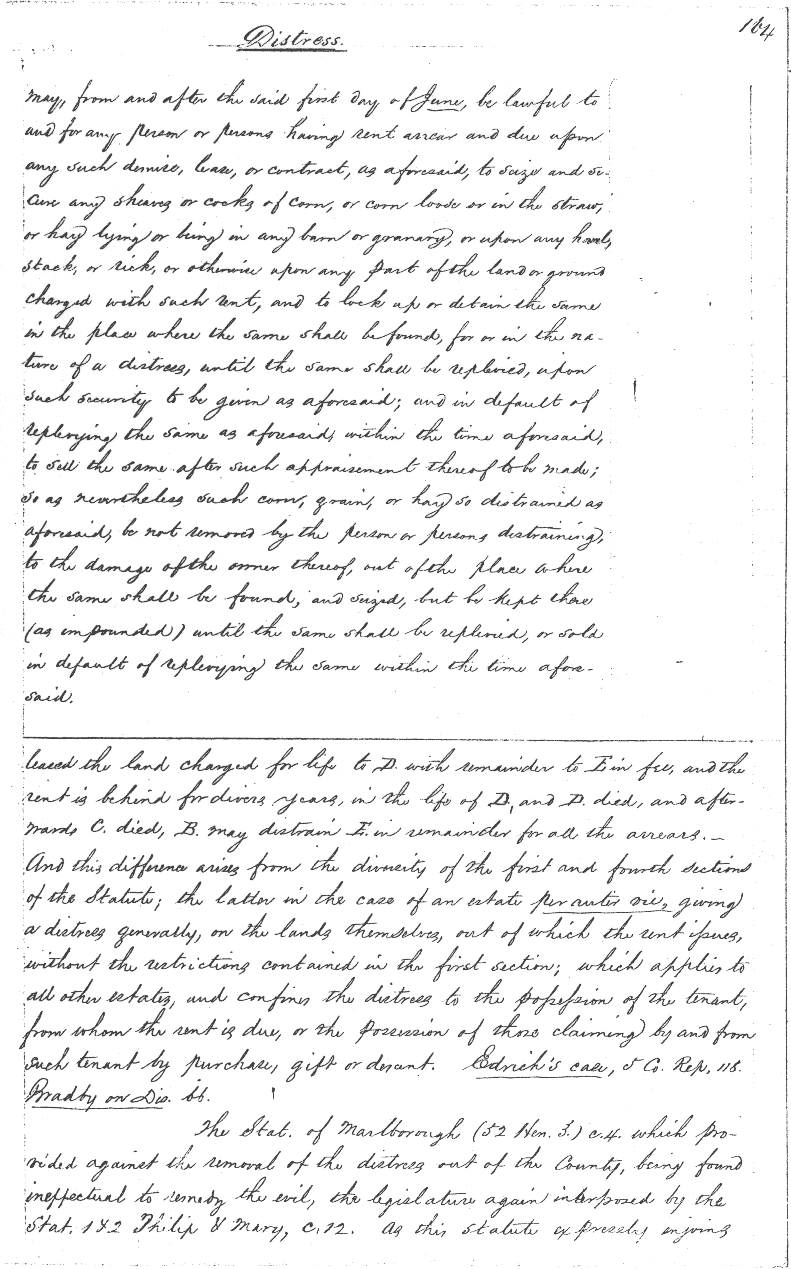 Distress.
164
may, from and after the said first day of June, be lawful to
and for any person or persons having rent arrear and due upon
any such demise, lease, or contract, as aforesaid, to seize and se-
cure any sheaves or cocks of corn, or corn loose or in the straw,
or hay lying or being in any barn or granary, or upon any hovel,
stack, or rick, or otherwise upon any part of the land or ground
charged with such rent, and to lock up or detain the same
in the place where the same shall be found, for or in the na-
ture of a distress, until the same shall be replevied, upon
such security to be given as aforesaid; and in default of
replevying the same as aforesaid, within the time aforesaid,
to sell the same after such appraisement thereof to be made;
so as nevertheless such corn, grain, or hay so distrained as
aforesaid, be not removed by the person or persons distraining,
to the damage of the owner thereof, out of the place where
the same shall be found, and seized, but be kept there
(as impounded) until the same shall be replevied, or sold
in default of replevying the same within the time afore-
said.
leased the land charged for life to D. with remainder to E in fee, and the
rent is behind for divers years, in the life of D, and D. died, and after-
wards C. died, B. may distrain E. in remainder for all the arrears. -
And this difference arises from the diversity of the first and fourth sections
of the Statute; the latter in the case of an estate per auter vie, giving
a distress generally, on the lands themselves, out of which the rent issues,
without the restrictions contained in the first section; which applies to
all other estates, and confines the distress to the possession of the tenant,
from whom the rent is due, or the possession of those claiming by and from
such tenant by purchase, gift or descent. Edrich's case, 5 Co. Rep. 118.
Bradby on Dis. 66.
The Stat. of Marlborough (52 Hen. 3.) c.4. which pro-
vided against the removal of the distress out of the County, being found
ineffectual to remedy the evil, the legislature again interposed by the
Stat. 1 & 2 Philip & Mary, c.12. As this statute expressly enjoins